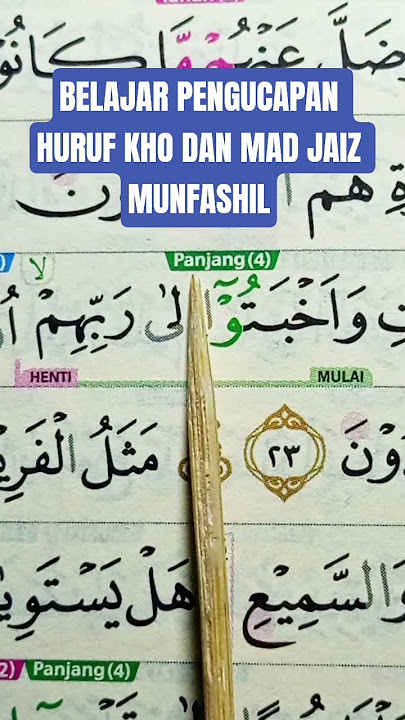 ضَلَّ عَنْهُمْ مَّا كَانُوْ
BELAJAR PENGUCAPAN
HURUF KHO DAN MAD JAIZ
MUNFASHIL
ةِ هُم
Panjang (4)
لا
تِ وَاَخْبَتُوْٓا اِلٰى رَبِّهِمْۙ اُ
MULAI
HENTI
دُوْنَ ﴿٢٣﴾ ۞ مَثَلُ الْفَرِيْ
وَالسَّمِيْعِۗ هَلْ يَسْتَوِيٰ
Panjang (4)